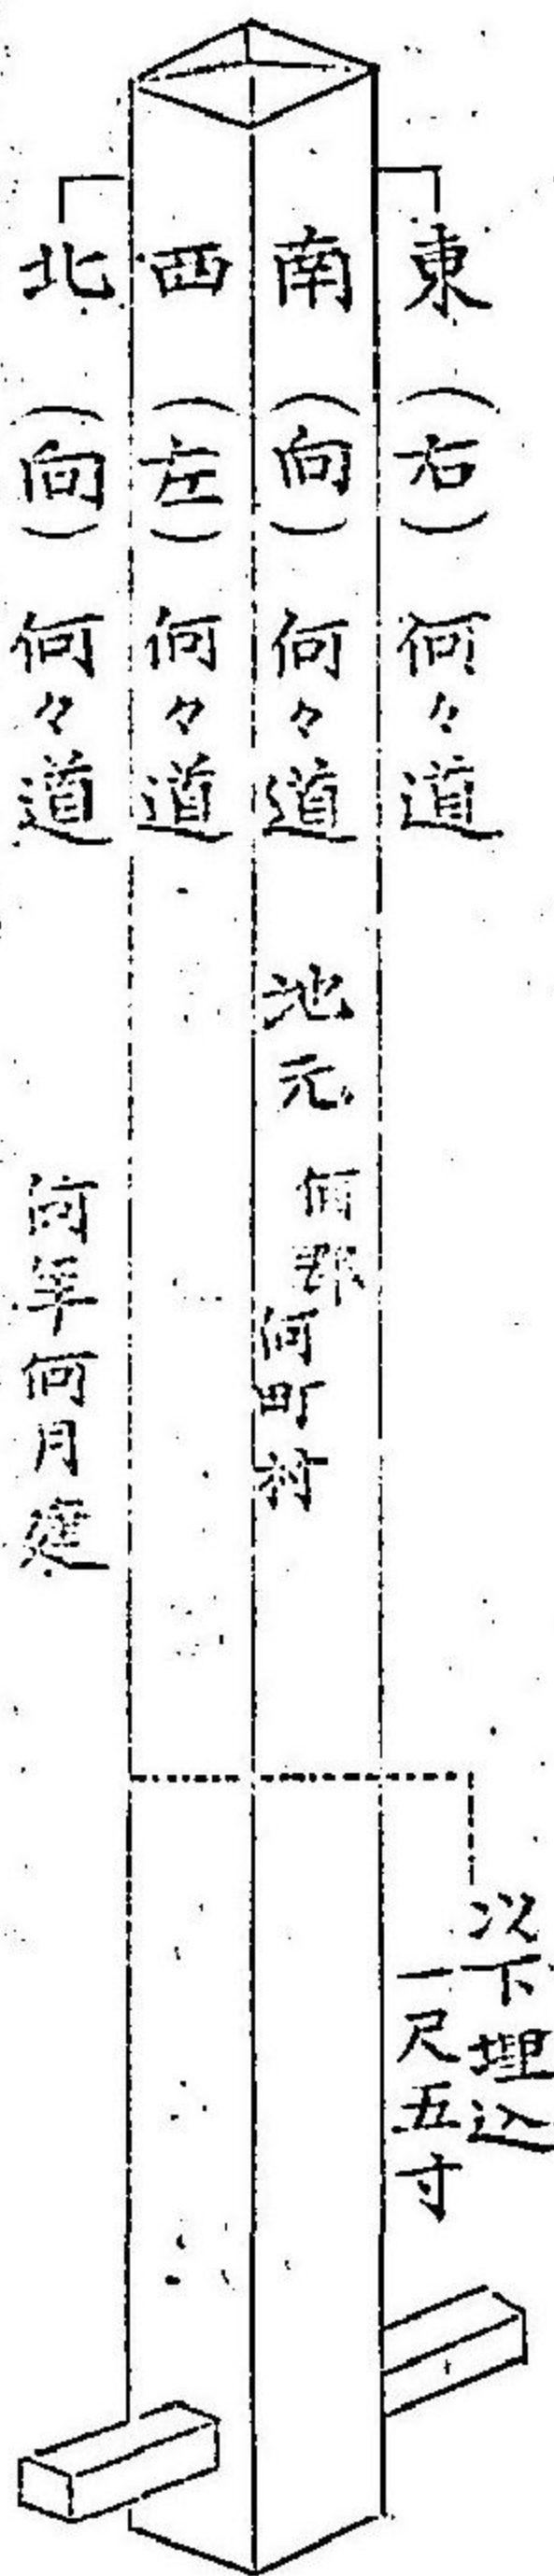 東（右）何々道
南（向）何々道 地元 何郡何町村
西（左）何々道
北（向）何々道 何年何月建
以下埋込
一尺五寸